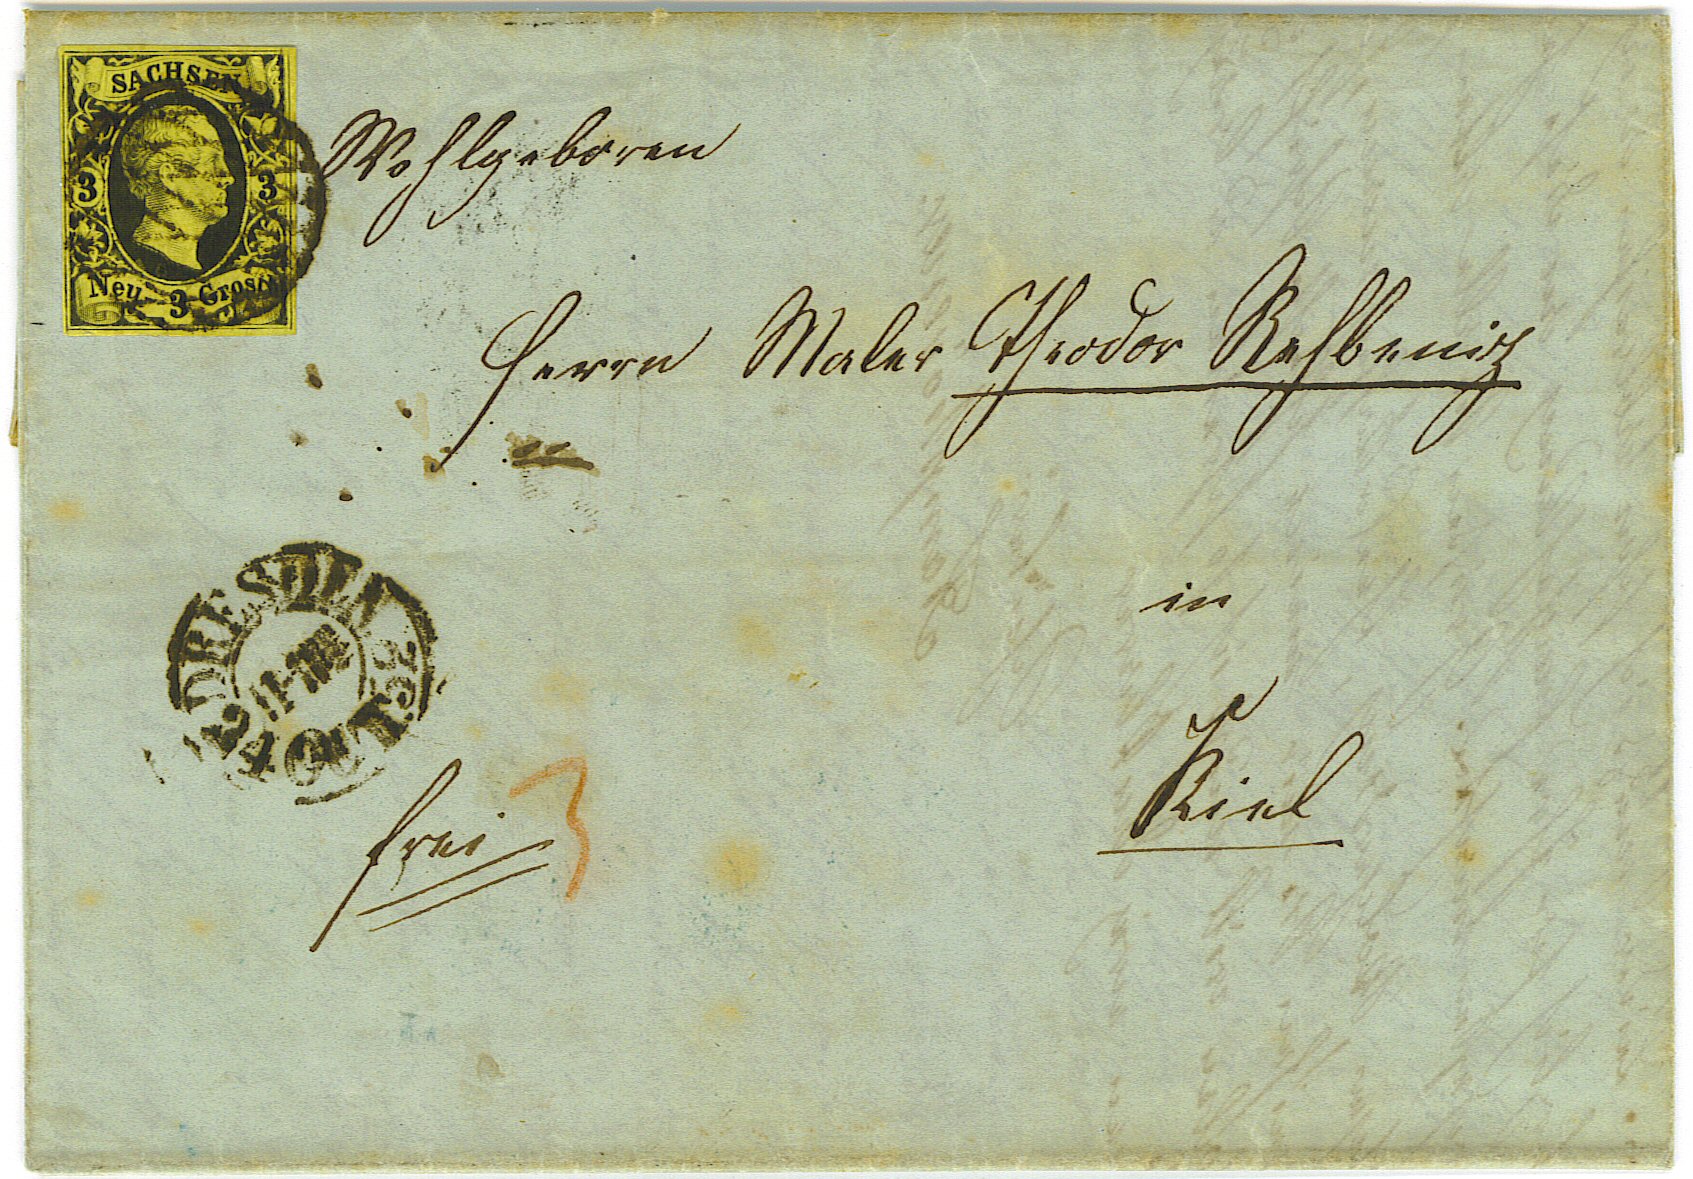 SACHSEN
3 3
Neu 3 Grosch
Wohlgeboren
Herrn Maler Theodor Rehbenitz
in
Kiel
DRESDEN
OCT. 52
frei
3